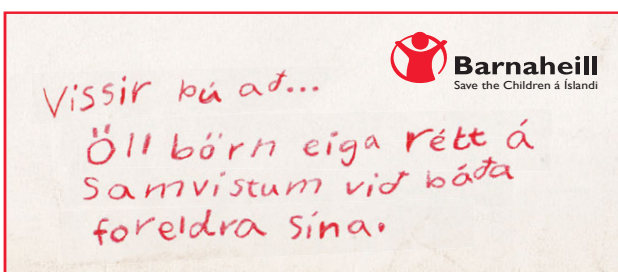 Barnaheill
Save the Children á Íslandi
Vissir þú að...
Öll börn eiga rétt á
Samvistum við báða
foreldra sína.